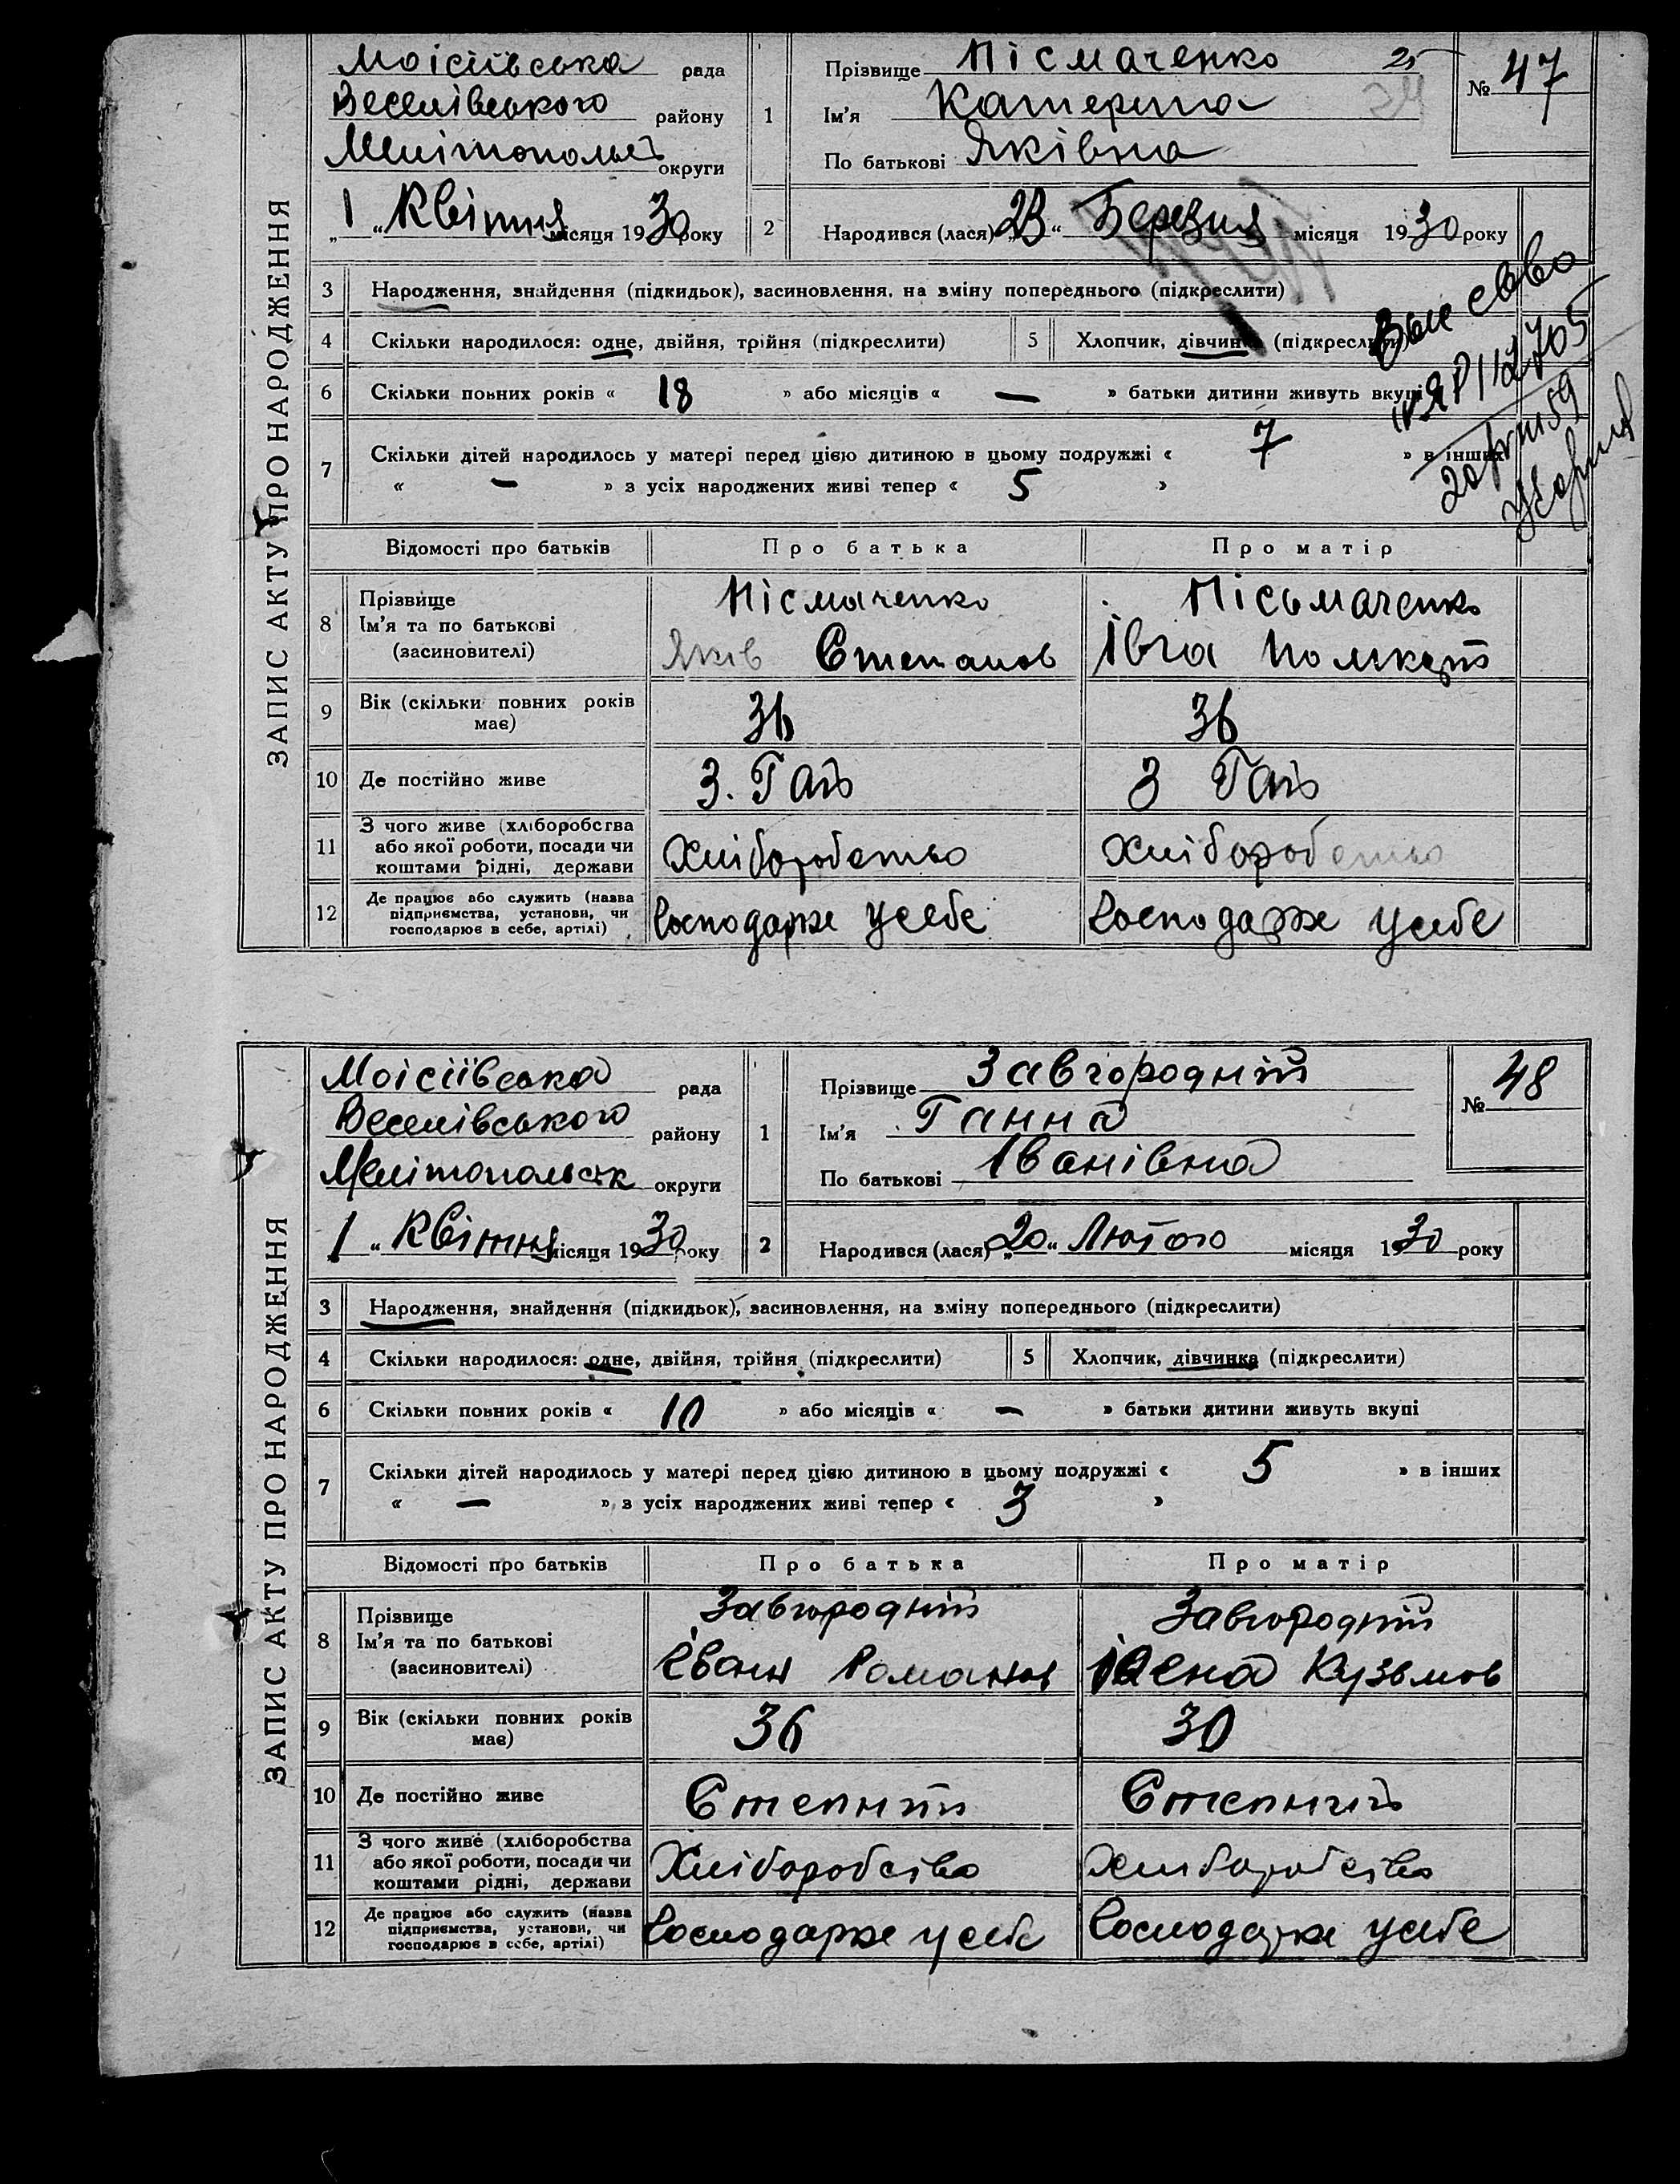 ЗАПИС АКТУ ПРО НАРОДЖЕННЯ
Моісіївська рада
Веселівського району
округи
„1“ Квітня місяця 1930 року
1
Прізвище Пісмаченко 25
Ім'я Катерина 34
По батькові Яківна
№ 47
2
Народився (лася) „23“ Березня місяця 1930 року
3 Народження, знайдення (підкидьок), засиновлення, на зміну попереднього (підкреслити)
4 Скільки народилося: одне, двійня, трійня (підкреслити) 5 Хлопчик, дівчинка (підкреслити)
6 Скільки повних років « 18 » або місяців « — » батьки дитини живуть вкупі
7 Скільки дітей народилось у матері перед цією дитиною в цьому подружжі « 7 » в інших
« — » з усіх народжених живі тепер « 5 »
ЯР 112705
Відомості про батьків Про батька Про матір
8 Прізвище Пісмаченко Пісьмаченко
Ім'я та по батькові Яків Степанов Івга
(засиновителі)
9 Вік (скільки повних років має) 36 36
10 Де постійно живе З. Гай З Гай
11 З чого живе (хліборобства або якої роботи, посади чи коштами рідні, держави Хліборобство Хліборобство
12 Де працює або служить (назва підприємства, установи, чи господарює в себе, артілі) Господарже у себе Господарже у себе
ЗАПИС АКТУ ПРО НАРОДЖЕННЯ
Моісіївська рада
Веселівського району
Мелітопольськ округи
„1“ Квітня місяця 1930 року
1
Прізвище Завгородній
Ім'я Ганна
По батькові Іванівна
№ 48
2
Народився (лася) „20“ Лютого місяця 1930 року
3 Народження, знайдення (підкидьок), засиновлення, на зміну попереднього (підкреслити)
4 Скільки народилося: одне, двійня, трійня (підкреслити) 5 Хлопчик, дівчинка (підкреслити)
6 Скільки повних років « 10 » або місяців « — » батьки дитини живуть вкупі
7 Скільки дітей народилось у матері перед цією дитиною в цьому подружжі « 5 » в інших
« — » з усіх народжених живі тепер « 3 »
Відомості про батьків Про батька Про матір
8 Прізвище Завгородній Завгородній
Ім'я та по батькові Іван Романов Олена Кузьмов
(засиновителі)
9 Вік (скільки повних років має) 36 30
10 Де постійно живе Степний Степний
11 З чого живе (хліборобства або якої роботи, посади чи коштами рідні, держави Хліборобство Хліборобство
12 Де працює або служить (назва підприємства, установи, чи господарює в себе, артілі) Господарже у себе Господарже у себе